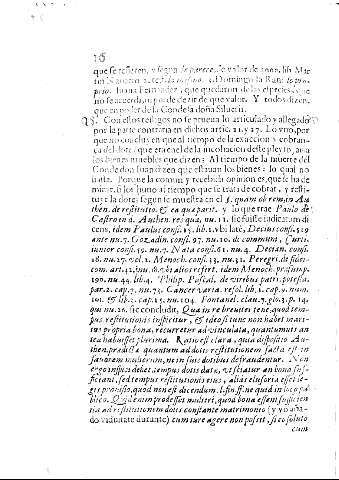 16
que se refieren, y segun de parece de valor de 2000. lib. Mar
tin Nauarro 2. te Domingo la Ran: lo pro-
prio. Iuana Fernandez, que quedaron de las especies, que
no se acuerda, ni puede dezir de que valor. Y todos dizen,
que en poder de la Condesa doña
Con estos testigos no se prueua lo articulado y allegado
por la parte contraria en dichos artic. 21. y 27. Lo vno, por
que no concluyen que al tiempo de la exaccion y cobran-
ça del dote, que era el de la incohacion deste pleyto, auia
los bienes muebles que dizen: Al tiempo de la muerte del
Conde do Iuan dizen que estauan los bienes: lo qual no
basta. Porque la comun y recebida opinion es, que se ha de
mirar, si los huuo al tiempo que se trata de cobrar, y resti-
tuyr la dote: segun se muestra en el §. quam ob rem, in Au
then. de restitutio. & ea quæ parit. y lo que trae Paulo de
Castro en d. Authen. res quæ, nu. 11. si fuisse iudicatum di-
cens, idem Paulus cons. 15. lib. 1. vbi latè, Decius cons. 519
ante nu. 7. Gozadin. cons. 97. nu. 10. de communi, Curt.
iunior cons. 59. nu. 7. Nata cons. 61. nu. 4. Decian. cons.
18. nu. 27. vol. 1. Menoch. cons. 33. nu. 31. Peregri. de fidei-
com. art. 42. nu. 8. vbi alios refert. idem Menoch. præsump.
190. nu. 44. lib. 4. Philip. Pascal. de viribus patri. potestat.
par. 2. cap. 7. nu. 73. Cancer varia. resol. lib. 1. cap. 9. num.
101. & lib. 2. cap. 15. nu. 104. Fontanel. clau. 7. glo. 3. p. 14.
qui nu. 26. sic concludit, Qua in re breuiter tene, quod tem-
pus restitutionis inspicitur, & ideo si tunc non habet mari-
tus propria bona, recurretur ad vinculata, quantumuis an
tea habuisset plurima. Ratio est clara, quia dispositio Au-
then. prædictæ quantum ad dotis restitutionem facta est in
fauorem mulierum, ne in suis dotibus defraudentur. Non
ergo inspici debet tempus dotis datæ, vt sciatur an bona suf-
ficiant, sed tempus restitutionis eius, alias elusoria esset le-
gis prouisio, quod non est dicendum, l. fin. ff. ne quid in loco pu
blico. Quid enim prodesset mulieri, quod bona essent sufficien
tia ad restitutionem dotis constante matrimonio (y yo aña-
do viduitate durante) cum tunc agere non posset, si ea soluto
cum